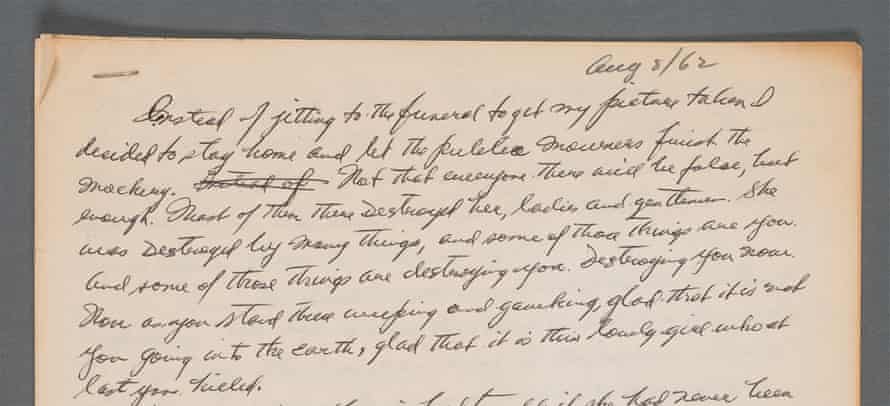 Aug 8/62
Instead of jetting to the funeral to get my picture taken I
decided to stay home and let the public mourners finish the
mocking. Instead of Not that everyone there will be false, but
enough. Most of them there Destroyed her, ladies and gentlemen. She
was Destroyed by many things, and some of those things are you.
And some of those things are destroying you. Destroying you now.
Now as you stand there weeping and gawking, glad that it is not
you going into the earth, glad that it is this lovely girl who at
last you killed.
she had never been